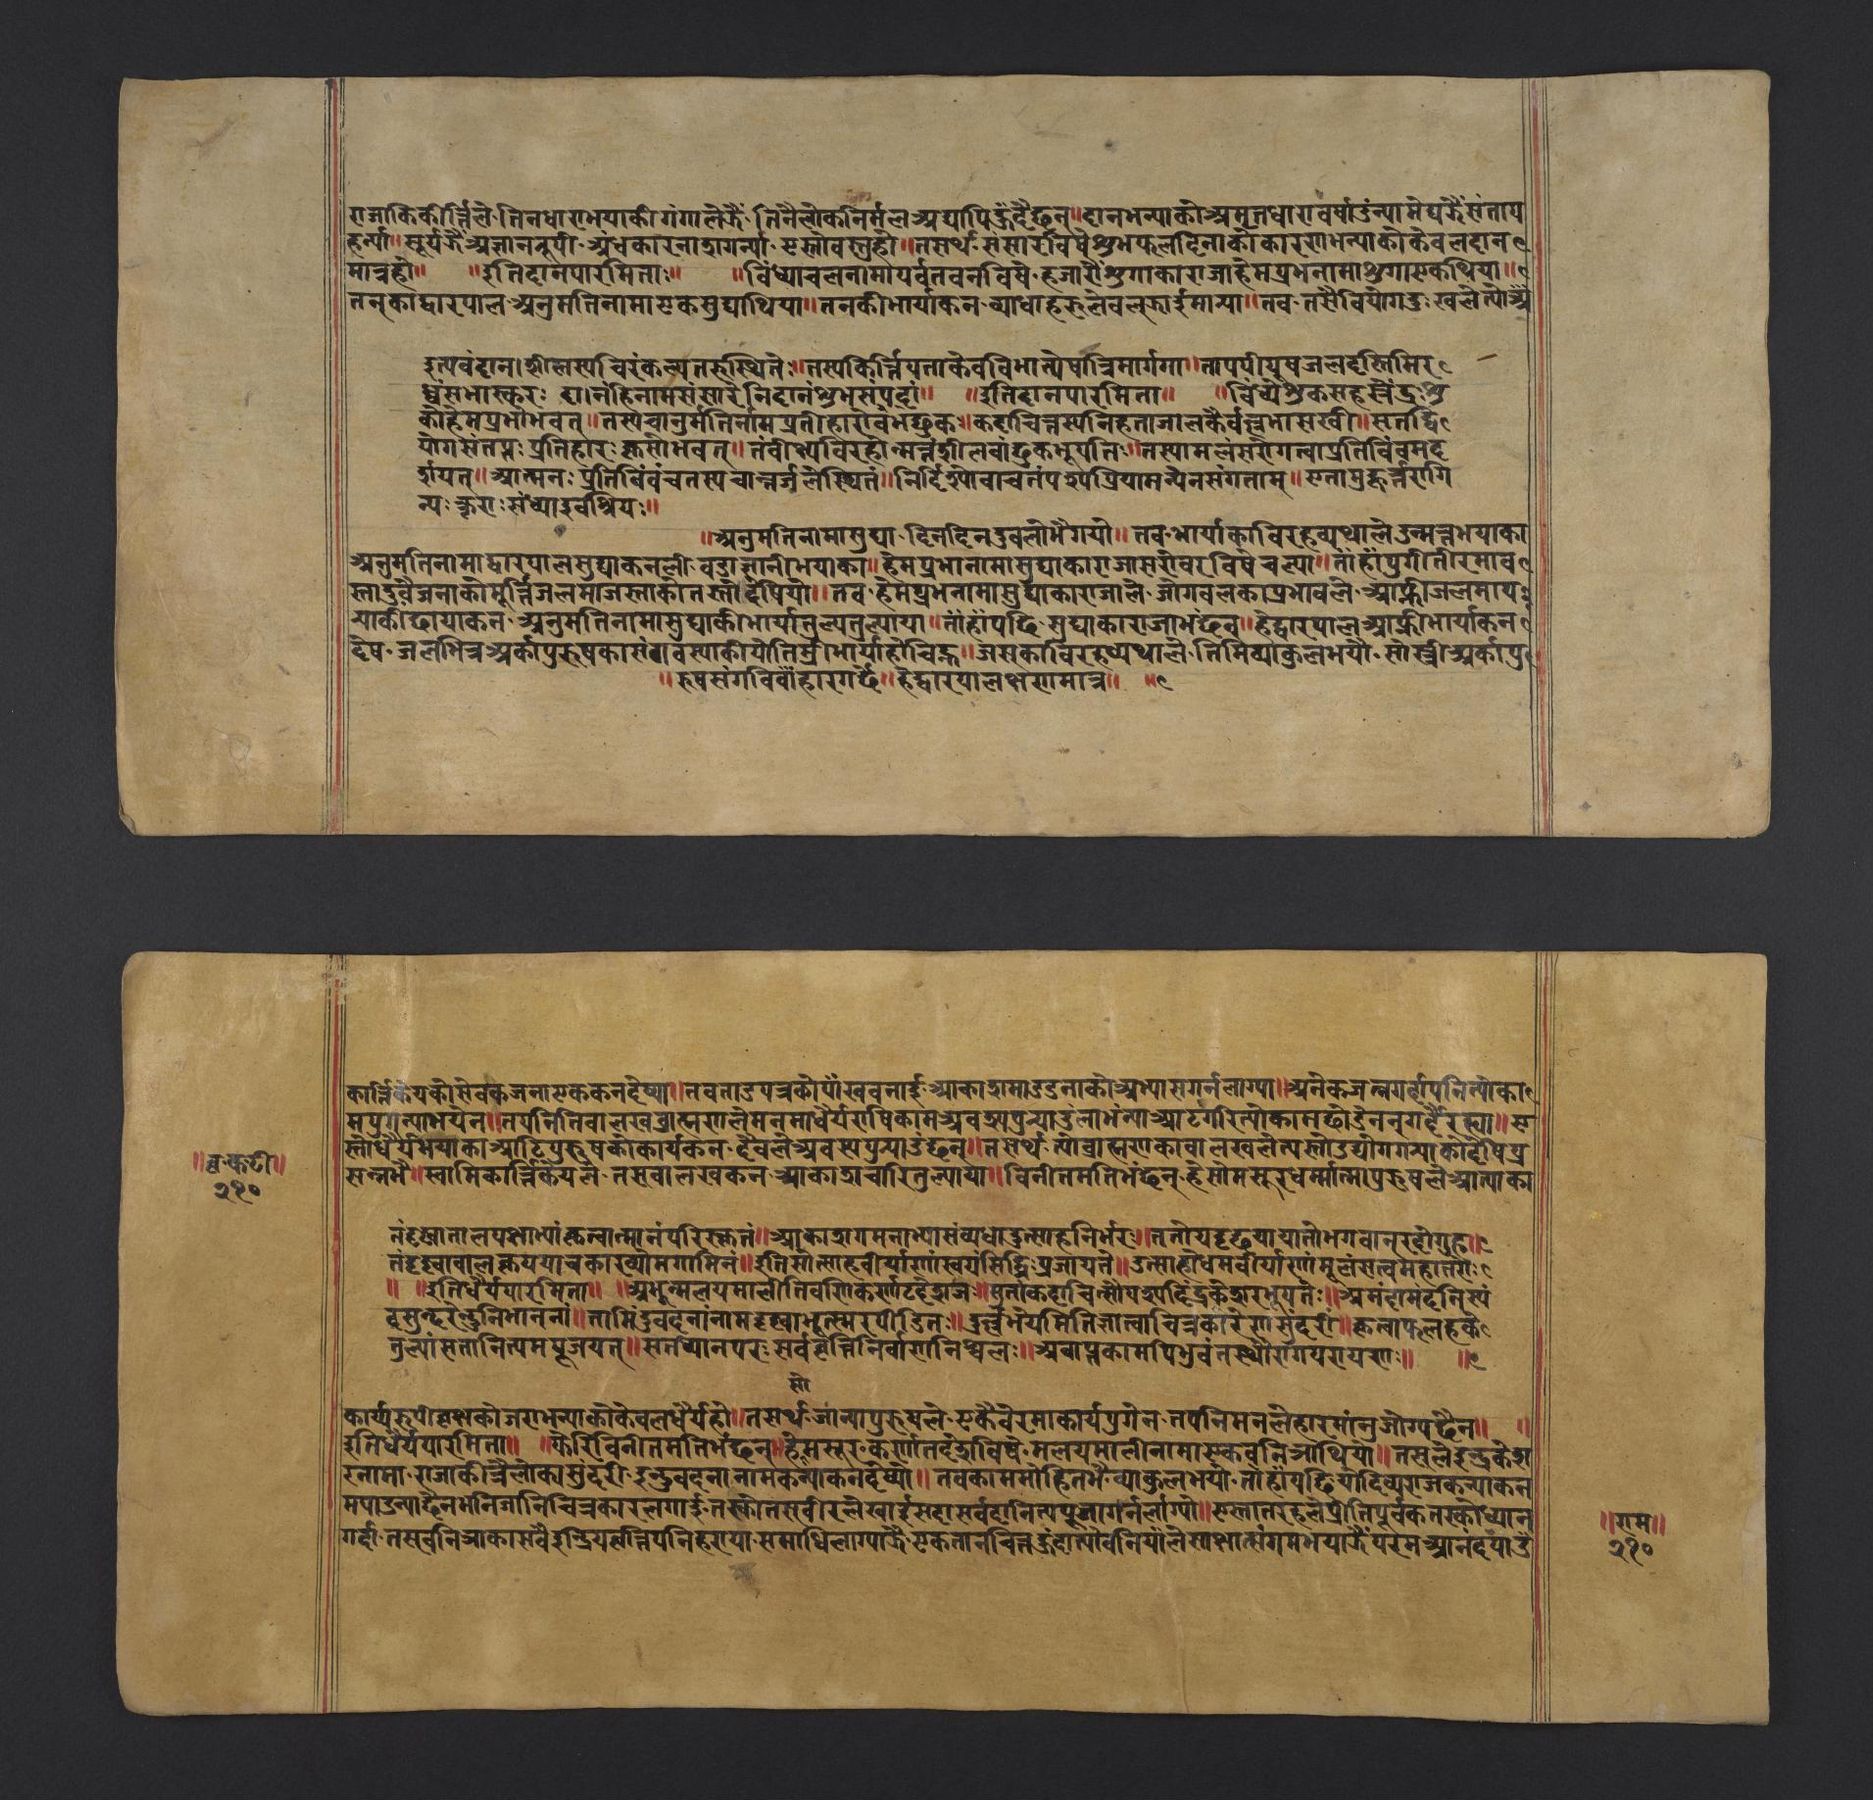 राजाकिकीर्त्तिले तिनधाराभयाकी गंगालेझैं तिनैलोकनिर्मल अद्यापिहुंदैछन्॥ दानभन्याको अमृतधारावर्षाउंन्या मेघझैं संताप
हर्न्या॥ सूर्यझैं अज्ञानरूपी अंधकारनाशगर्न्या एस्तोवस्तुहो॥ तसर्थ संसारविषे शुभफलदिनाको कारणभन्याको केवलदान
मात्रहो॥ ॥इतिदानपारमिता॥ ॥विंध्याचलनामापर्वतवनविषे हजारौंशुगाकाराजा हेमप्रभनामाशुगाएकथिया॥
तनकाद्वारपाल अनुमतिनामा एकसुग्राथिया॥ तनकीभार्याकन व्याधाहरुलेवलझाईमार्‍या॥ तव तसैवियोगदुःखले त्यो
इत्यवंदानशीलस्य चिरंकल्पतरुस्थितेः॥ तस्यकिर्त्तिपताकेव विभात्येषात्रिमार्गगा॥ तापपीयूषजलदस्तिमिर
ध्वंसभास्करः दानंहिनामसंसारे निदानंशुभसंपदां॥ ॥इतिदानपारमिता॥ ॥विंध्येशुकसहस्रेंद्रःशु
कोहेमप्रभोभवत्॥ तस्यचानुमतिर्नाम प्रतीहारोवभूछुकः॥ कदाचित्तस्यनिहता जालकैर्वल्लभासखी॥ सतद्वि
योगसंतप्तः प्रतिहारः कृसोभवत्॥ तंवीक्ष्यविरहोन्मत्तं शीलवांछुकभूपतिः॥ तस्यामलंसरोगत्वा प्रतिविंवमद
र्शयत्॥ आत्मनः प्रतिविंवंच तस्यचान्तर्जलेस्थितं॥ निर्दिश्योवाचतंपश्य प्रियामन्येनसंगताम्॥ एताप्रकृ
न्यः क्रूराः संध्याइवश्रियः॥
॥अनुमतिनामासुग्रा दिनदिनदुवलोभैगयो॥ तव भार्याकाविरहव्यथाले उन्मत्तभयाका
अनुमतिनामाद्वारपालसुग्राकनली वडाज्ञानीभयाका॥ हेमप्रभानामासुग्राकाराजा सरोवरविषे चल्या॥ तांहांपुगी तीरमाव
स्तादुवैजनाको मूर्त्तिजलमाजस्ताकोतस्तो देषियो॥ तव हेमप्रभनामासुग्राकाराजाले जोगवलकाप्रभावले आफ्नीजलमाप
र्‍याकीछायाकन अनुमतिनामासुग्राकीभार्यातुल्यतुल्याया॥ तांहांपछि सुग्राकाराजाभंछन्॥ हेद्वारपाल आफ्नीभार्याकन
देष जलभित्र अर्कापुरुषका संगवस्याकी योतिम्रीभार्याहोचिह्न॥ जसकाविरहव्यथाले तिमिव्याकुलभयौ सोस्त्री अर्कापु
॥रुषसंगविर्वाहारगर्दै॥ हेद्वारपालक्षणमात्र॥
कार्त्तिकेयकोसेवक जनाएककनदेष्या॥ तवताडपत्रकोपांखवनाई आकाशमाउडनाको अभ्यासगर्नलाग्या॥ अनेकजत्नगर्दापनि त्योका
मपुगन्याभयेन॥ तपनितिवालखव्राह्मणले मनमाधैर्यराषि काम अवश्यपुर्‍याउंलाभन्या आटगरि त्योकामछोडेनन् गर्दैरह्या॥ ए
स्तोधैर्यभयाका आदिपुरुषकोकार्यकन दैवले अवस्यपुर्‍याउंछन्॥ तसर्थ त्योव्राह्मणकावालखले त्यस्तोउद्योगगर्‍याकोदेषि प्र
सन्नभै॥ स्वामिकार्त्तिकेयले तसवालखकन आकाशचारितुल्याया॥ विनीतमतिभंछन् हेसोमसूर धर्म्मात्मापुरुषले आत्याका
॥व्र॰कटी॥
२१०
नंदृष्ट्वातालपक्षाभ्यां कृत्वात्मानंपरिस्कृतं॥ आकाशगमनाभ्यासं व्यधादुत्साहनिर्भरः॥ ततोयदृछयायातो भगवान्वरदोगुहः॥
तंदृष्ट्वावालकृपया चकारव्योमगामिनं॥ इतिसोत्साहवीर्याणां स्वयंसिद्धिः प्रजायते॥ उत्साहोधर्मवीर्याणां मूलंसत्वंमहात्मेरोः
॥ ॥इतिधैर्यपारमिता॥ ॥अभून्मलयमालीतिवणिक्कर्णाटदेशजः॥ सुतांकदाचित्सोपश्यदिंद्रकेशरभूपतेः॥ अमंदामंदनिस्यं
दसुन्दरेन्दुनिभाननां॥ तामिंदुवदनांनाम दृष्ट्वाभूत्स्मरपीडितः॥ दुर्ल्लभेयमितिज्ञात्वा चित्रकारेणसुंदरीं॥ कृत्वाफलहके
तुल्यां सतांनित्यमपूजयत्॥ सतंध्यानपरः सर्ववृत्तिनिर्वाणनिश्चलः॥ अवाप्तकामपिभुवं तस्थौरागपरायणः॥ ॥
सो
कार्य्यरूपीवृक्षको जराभन्याको केवलधैर्यहो॥ तसर्थ जान्यापुरुषले एकैवेरमाकार्यपुगेन तपनिमनलेहारमांनुजोग्यछैन॥ ॥
इतिधैर्यपारमिता॥ ॥फेरिविनीतमतिभंछन्॥ हेसोमसूर कर्णाटदेशविषे मलयमालीनामा एकवनिआथियो॥ तसले इन्द्रकेश
रनामा राजाकी त्रैलोक्यसुंदरी इन्दुवदनानामकन्याकनदेष्यो॥ तवकाममोहितभै व्याकुलभयो तांहांपछि योदिव्यराजकन्याकन
मपाउन्याछैनभनिजानि चित्रकारलगाई तस्कोतसवीरलेखाई सदासर्वदानित्यपूजागर्नलाग्यो॥ एस्तातरहले प्रीतिपूर्वक तस्कोध्यान
गर्दा तसवनिआका सवैइन्द्रियवृत्तिपनिहराया समाधिलाग्याझैं एकतानचित्तहुंदा त्योवनियांले साक्षात्संगमभयाझैं परमआनंदपाउ
॥राम॥
२१०